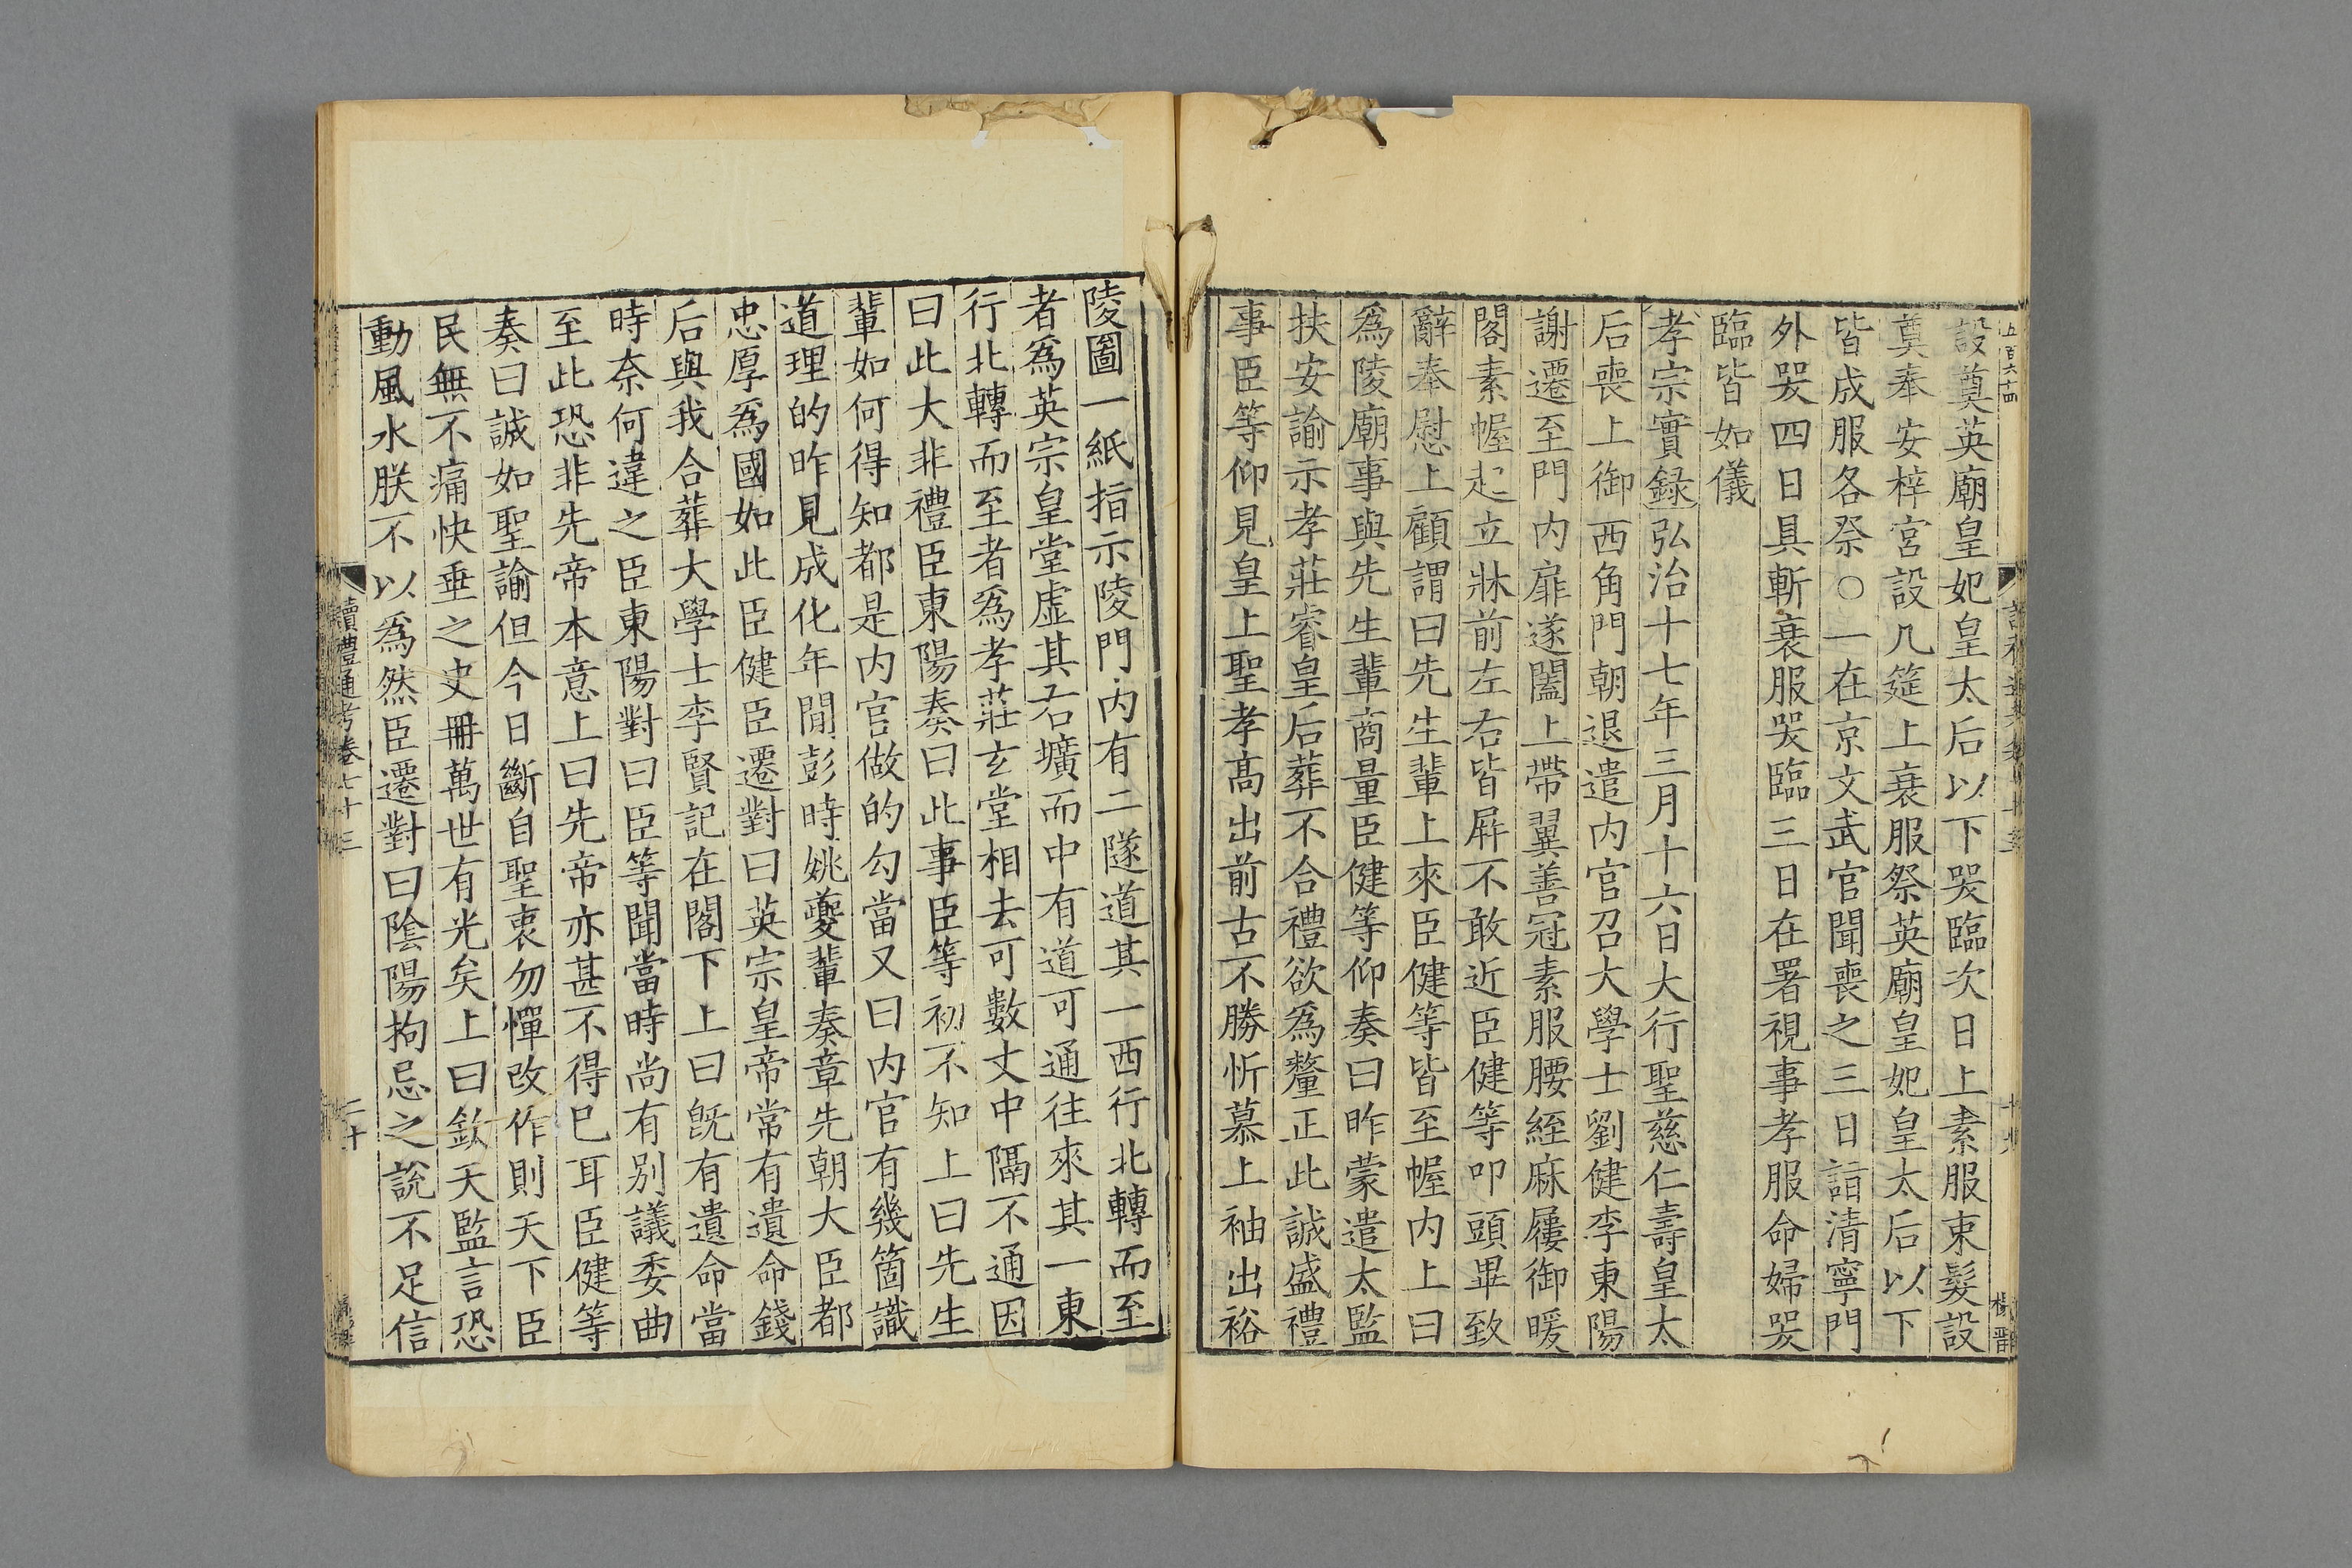 設奠英廟皇妃皇太后以下哭臨次日上素服束髮設
奠奉安梓宮設几筵上衰服祭英廟皇妃皇太后以下
皆成服各祭○一在京文武官聞喪之三日詣清寧門
外哭四日具斬衰服哭臨三日在署視事孝服命婦哭
臨皆如儀
孝宗實錄弘治十七年三月十六日大行聖慈仁壽皇太
后喪上御西角門朝退遣内官召大學士劉健李東陽
謝遷至門内扉遂闔上帶翼善冠素服腰絰麻屨御暖
閣素幄起立牀前左右皆屏不敢近臣健等叩頭畢致
辭奉慰上顧謂曰先生輩上來臣健等皆至幄内上曰
爲陵廟事與先生輩商量臣健等仰奏曰昨蒙遣太監
扶安諭示孝莊睿皇后葬不合禮欲爲釐正此誠盛禮
事臣等仰見皇上聖孝高出前古不勝忻慕上袖出裕
陵圖一紙指示陵門内有二隧道其一西行北轉而至
者爲英宗皇堂虛其右壙而中有道可通往來其一東
行北轉而至者爲孝莊玄堂相去可數丈中隔不通因
曰此大非禮臣東陽奏曰此事臣等初不知上曰先生
輩如何得知都是内官做的勾當又曰内官有幾箇識
道理的昨見成化年間彭時姚夔輩奏章先朝大臣都
忠厚爲國如此臣健臣遷對曰英宗皇帝常有遺命錢
后與我合葬大學士李賢記在閣下上曰旣有遺命當
時奈何違之臣東陽對曰臣等聞當時尚有別議委曲
至此恐非先帝本意上曰先帝亦甚不得已耳臣健等
奏曰誠如聖諭但今日斷自聖衷勿憚改作則天下臣
民無不痛快垂之史冊萬世有光矣上曰欽天監言恐
動風水朕不以爲然臣遷對曰陰陽拘忌之說不足信
讀禮通考卷七十三
二十